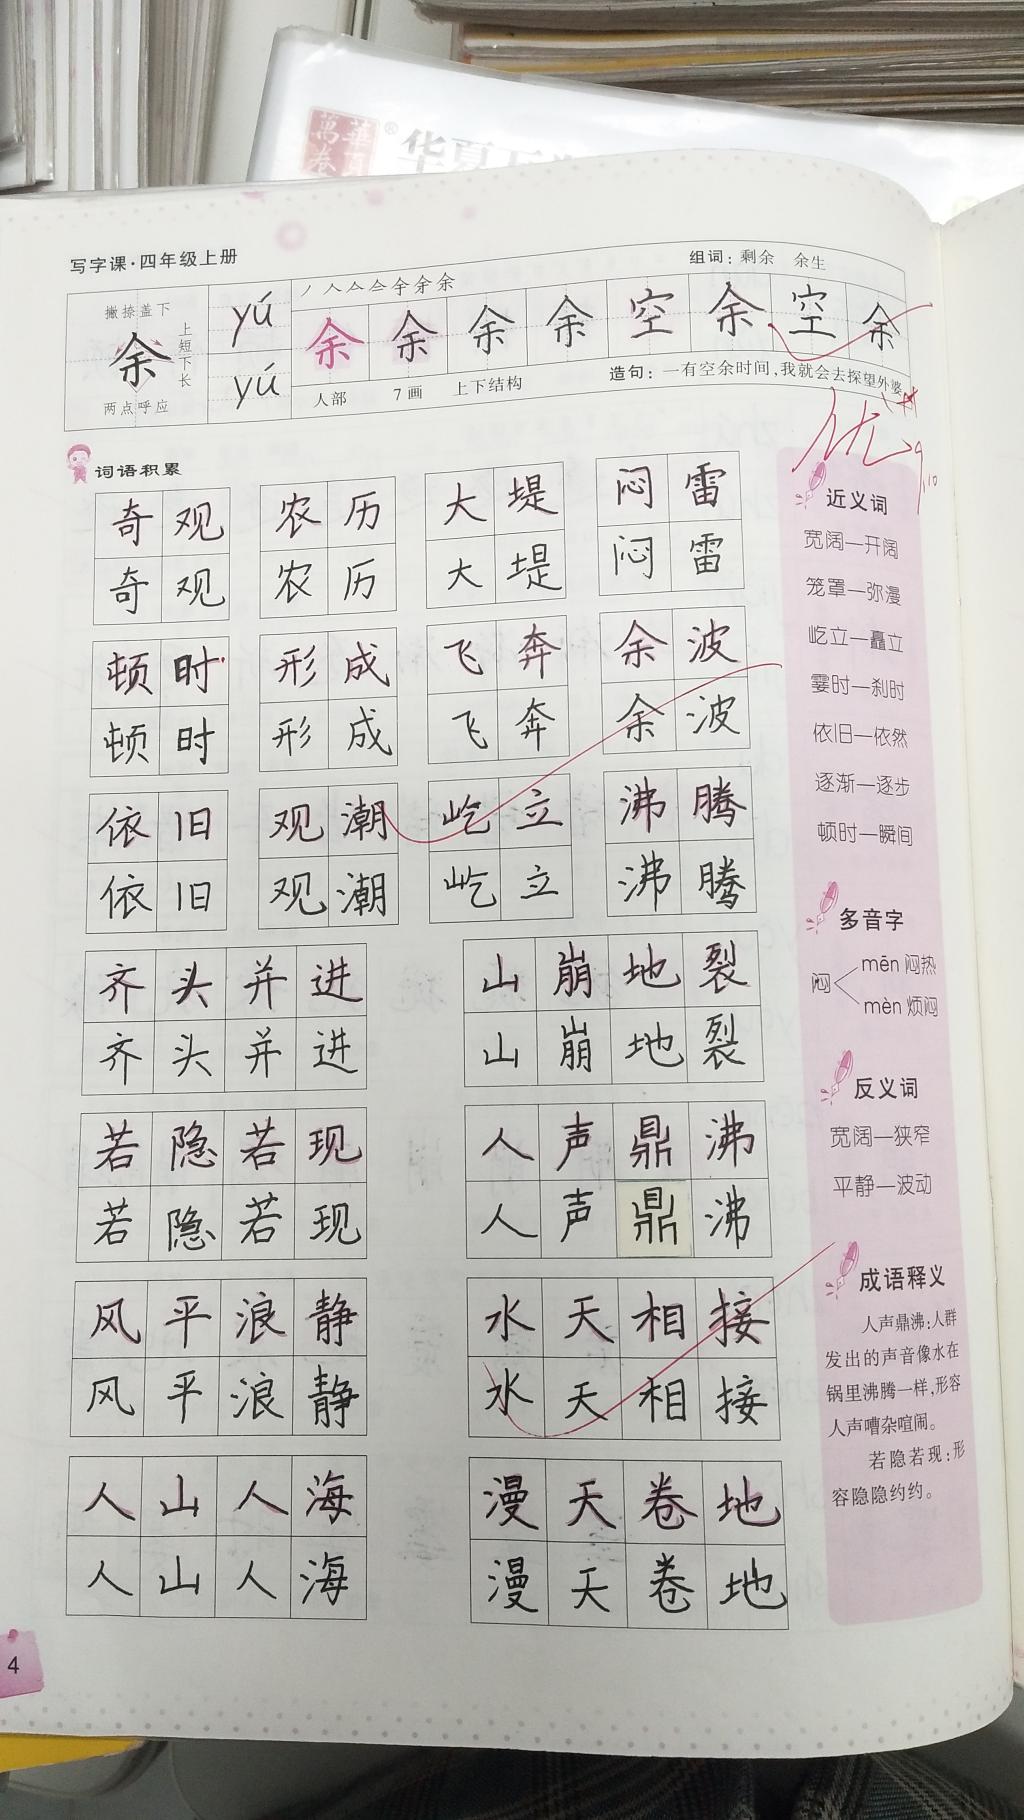 華夏
萬卷
®
华夏万卷
写字课·四年级上册
组词：剩余 余生
撇捺盖下
上短下长
余
两点呼应
yú
yú
余 余 余 余 空 余 空 余
人部 7画 上下结构
造句：一有空余时间，我就会去探望外婆。
优
9.10
词语积累
奇观 农历 大堤 闷雷
奇观 农历 大堤 闷雷
顿时 形成 飞奔 余波
顿时 形成 飞奔 余波
依旧 观潮 屹立 沸腾
依旧 观潮 屹立 沸腾
齐头并进 山崩地裂
齐头并进 山崩地裂
若隐若现 人声鼎沸
若隐若现 人声鼎沸
风平浪静 水天相接
风平浪静 水天相接
人山人海 漫天卷地
人山人海 漫天卷地
近义词
宽阔—开阔
笼罩—弥漫
屹立—矗立
霎时—刹时
依旧—依然
逐渐—逐步
顿时—瞬间
多音字
闷
mēn 闷热
mèn 烦闷
反义词
宽阔—狭窄
平静—波动
成语释义
人声鼎沸：人群
发出的声音像水在
锅里沸腾一样，形容
人声嘈杂喧闹。
若隐若现：形
容隐隐约约。
4